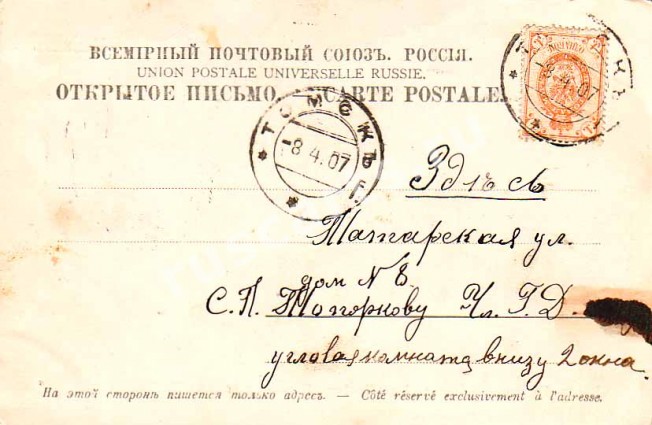 ВСЕМІРНЫЙ ПОЧТОВЫЙ СОЮЗЪ. РОССІЯ.
UNION POSTALE UNIVERSELLE RUSSIE.
ОТКРЫТОЕ ПИСЬМО. — CARTE POSTALE.
ТОМСКЪ
8.4.07
ТОМСКЪ
8.4.07
Здѣсь
Татарская ул.
дом N 8
С. П. Топоркову Чл. Г. Д.
угловая комната внизу 2 окна.
На этой сторонѣ пишется только адресъ. — Côté réservé exclusivement à l'adresse.